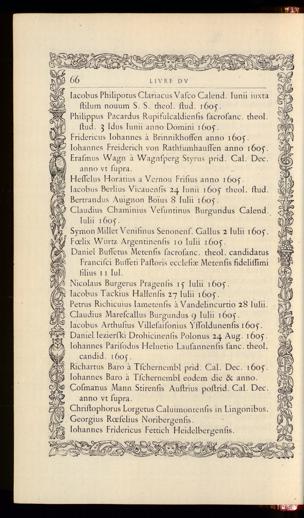 66 LIVRE DV
Iacobus Philipotus Clariacus Vasco Calend. Iunii iuxta
ſtilum nouum S. S. theol. ſtud. 1605.
Philippus Pacardus Rupifulcaldienſis ſacroſanc. theol.
ſtud. 3 Idus Iunii anno Domini 1605.
Fridericus Iohannes à Brinnikhoffen anno 1605.
Iohannes Freiderich von Rathſumhauſſen anno 1605.
Eraſmus Wagn à Wagnſperg Styrus prid. Cal. Dec.
anno vt ſupra.
Heſſelus Horatius a Vernou Friſius anno 1605.
Iacobus Berlius Vicauenſis 24 Iunii 1605 theol. ſtud.
Bertrandus Auignon Boius 8 Iulii 1605.
Claudius Chaminius Veſuntinus Burgundus Calend.
Iulii 1605.
Symon Millet Venifinus Senonenſ. Gallus 2 Iulii 1605.
Fœlix Wurtz Argentinenſis 10 Iulii 1605.
Daniel Buſſetus Metenſis ſacroſanc. theol. candidatus
Franciſci Buſſeti Paſtoris eccleſiæ Metenſis fideliſſimi
filius 11 Iul.
Nicolaus Burgerus Pragenſis 15 Iulii 1605.
Iacobus Tackius Hallenſis 27 Iulii 1605.
Petrus Richicuius Iametenſis à Vandelincurtio 28 Iulii.
Claudius Mareſcallus Burgundus 9 Iulii 1605.
Iacobus Arthuſius Villefaiſonius Yſſoldunenſis 1605.
Daniel Iezierſki Drohicinenſis Polonus 24 Aug. 1605.
Iohannes Pariſodus Heluetio Lauſannenſis ſanc. theol.
candid. 1605.
Richartus Baro à Tſchernembl prid. Cal. Dec. 1605.
Iohannes Baro à Tſchernembl eodem die & anno.
Coſmanus Mann Stirenſis Auſtrius poſtrid. Cal. Dec.
anno vt ſupra.
Chriſtophorus Lorgetus Caluimontenſis in Lingonibus.
Georgius Rœſelius Noribergenſis.
Iohannes Fridericus Fettich Heidelbergenſis.